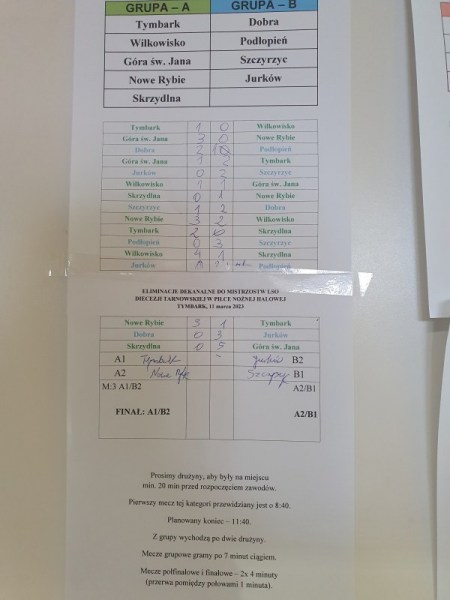 GRUPA – A GRUPA – B
Tymbark Dobra
Wilkowisko Podłopień
Góra św. Jana Szczyrzyc
Nowe Rybie Jurków
Skrzydlna
Tymbark 1 0 Wilkowisko
Góra św. Jana 3 0 Nowe Rybie
Dobra 2 Podłopień
Góra św. Jana 1 2 Tymbark
Jurków 0 2 Szczyrzyc
Wilkowisko 1 1 Góra św. Jana
Skrzydlna 0 1 Nowe Rybie
Szczyrzyc 1 2 Dobra
Nowe Rybie 3 2 Wilkowisko
Tymbark 2 Skrzydlna
Podłopień 0 3 Szczyrzyc
Wilkowisko 4 1 Skrzydlna
Jurków Podłopień
ELIMINACJE DEKANALNE DO MISTRZOSTW LSO
DIECEZJI TARNOWSKIEJ W PIŁCE NOŻNEJ HALOWEJ
TYMBARK, 11 marca 2023
Nowe Rybie 3 1 Tymbark
Dobra 0 3 Jurków
Skrzydlna 0 5 Góra św. Jana
A1 Tymbark - Jurków B2
A2 Nowe Rybie B1
M:3 A1/B2 A2/B1
FINAŁ: A1/B2 A2/B1
Prosimy drużyny, aby były na miejscu
min. 20 min przed rozpoczęciem zawodów.
Pierwszy mecz tej kategori przewidziany jest o 8:40.
Planowany koniec – 11:40.
Z grupy wychodzą po dwie drużyny.
Mecze grupowe gramy po 7 minut ciągiem.
Mecze półfinałowe i finałowe – 2x 4 minuty
(przerwa pomiędzy połowami 1 minuta).